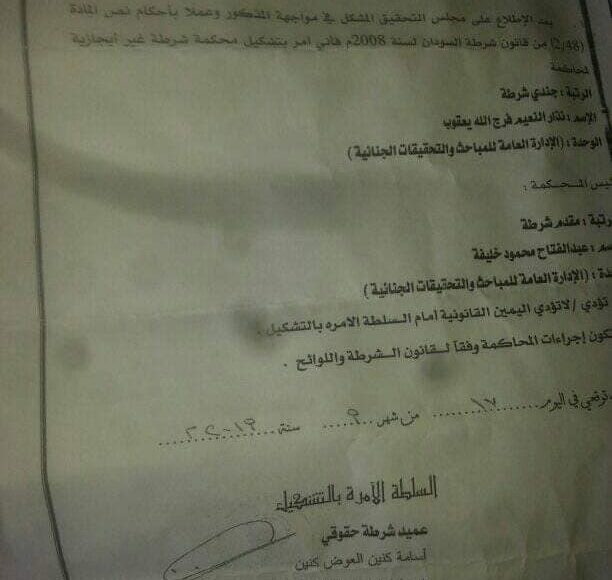 بعد الإطلاع على مجلس التحقيق المشكل في مواجهة المذكور وعملا بأحكام نص المادة
(2/48) من قانون شرطة السودان لسنة 2008م فاني امر بتشكيل محكمة شرطة غير ايجازية
لمحاكمة
الرتبة : جندي شرطة
الإسم : نذار النعيم فرج الله يعقوب
الوحدة : (الإدارة العامة للمباحث والتحقيقات الجنائية)
ئيس المحكمة :
رتبة : مقدم شرطة
سم : عبدالفتاح محمود خليفة
دة : (الإدارة العامة للمباحث والتحقيقات الجنائية)
تؤدي / لاتؤدي اليمين القانونية أمام السلطة الامره بالتشكيل .
كون إجراءات المحاكمة وفقاً لقانون الشرطة واللوائح .
توقيعي في اليوم ...١٧... من شهر ...٩... سنة ...
السلطة الآمرة بالتشكيل
عميد شرطة حقوقي
أسامة كنين العوض كنين